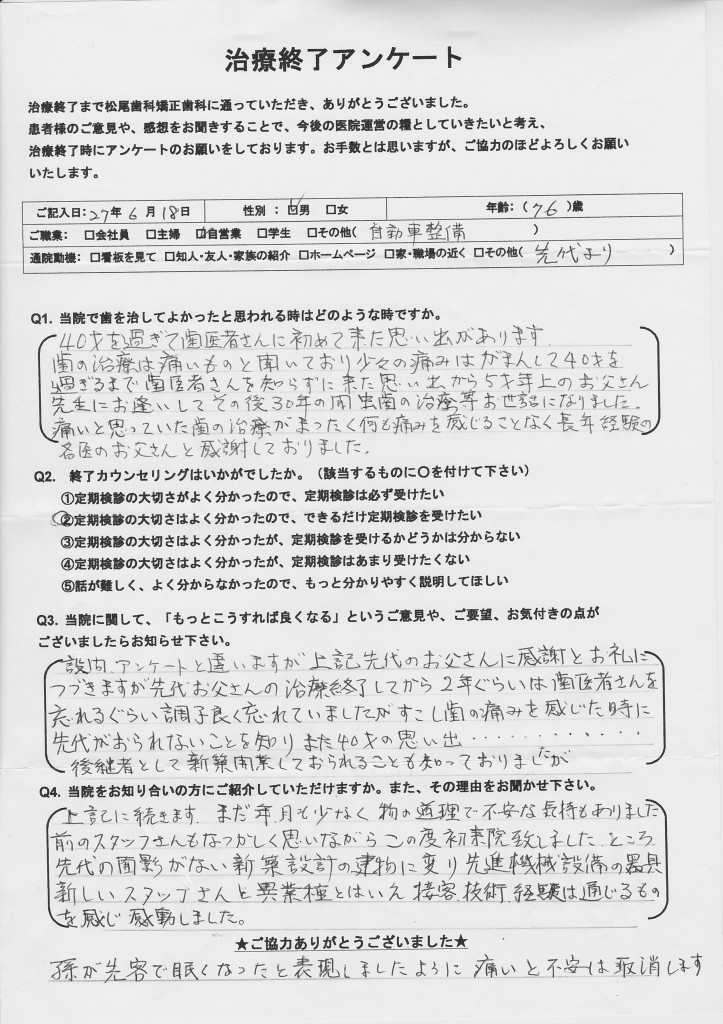 治療終了アンケート
治療終了まで松尾歯科矯正歯科に通っていただき、ありがとうございました。
患者様のご意見や、感想をお聞きすることで、今後の医院運営の糧としていきたいと考え、
治療終了時にアンケートのお願いをしております。お手数とは思いますが、ご協力のほどよろしくお願い
いたします。
ご記入日：27年 6 月 18日 性別 ： ☑男 □女 年齢：（ 76 ）歳
ご職業： □会社員 □主婦 ☑自営業 □学生 □その他( 自動車整備 )
通院動機：□看板を見て □知人・友人・家族の紹介 □ホームページ □家・職場の近く □その他( 先代より )
Q1. 当院で歯を治してよかったと思われる時はどのような時ですか。
40才を過ぎて歯医者さんに初めて来た思い出があります.
歯の治療は痛いものと聞いており少々の痛みはがまんして40才を
過ぎるまで歯医者さんを知らずに来た思い出から5才年上のお父さん
先生にお逢いしてその後30年の間虫歯の治療等お世話になりました.
痛いと思っていた歯の治療がまったく何も痛みを感じることなく長年経験の
名医のお父さんと感謝しておりました.
Q2. 終了カウンセリングはいかがでしたか。（該当するものに〇を付けて下さい）
①定期検診の大切さがよく分かったので、定期検診は必ず受けたい
②定期検診の大切さはよく分かったので、できるだけ定期検診を受けたい
③定期検診の大切さはよく分かったが、定期検診を受けるかどうかは分からない
④定期検診の大切さはよく分かったが、定期検診はあまり受けたくない
⑤話が難しく、よく分からなかったので、もっと分かりやすく説明してほしい
Q3. 当院に関して、「もっとこうすれば良くなる」というご意見や、ご要望、お気付きの点が
ございましたらお知らせ下さい。
設問、アンケートと違いますが上記先代のお父さんに感謝とお礼に
つづきますが先代お父さんの治療終了してから2年ぐらいは歯医者さんを
忘れるぐらい調子良く忘れていましたがすこし歯の痛みを感じた時に
先代がおられないことを知りまた40才の思い出・・・・・・・・・・・・
後継者として新築開業しておられることも知っておりましたが
Q4. 当院をお知り合いの方にご紹介していただけますか。また、その理由をお聞かせ下さい。
上記に続きます. まだ年月も少なく物の道理で不安な気持もありました
前のスタッフさんもなつかしく思いながらこの度初来院致しました. ところ
先代の面影がない新築設計の建物に変り先進機械設備の器具
新しいスタッフさんと異業種とはいえ接客、技術、経験は通じるもの
を感じ感動しました。
★ご協力ありがとうございました★
孫が先客で眠くなったと表現しましたように痛いと不安は取消します